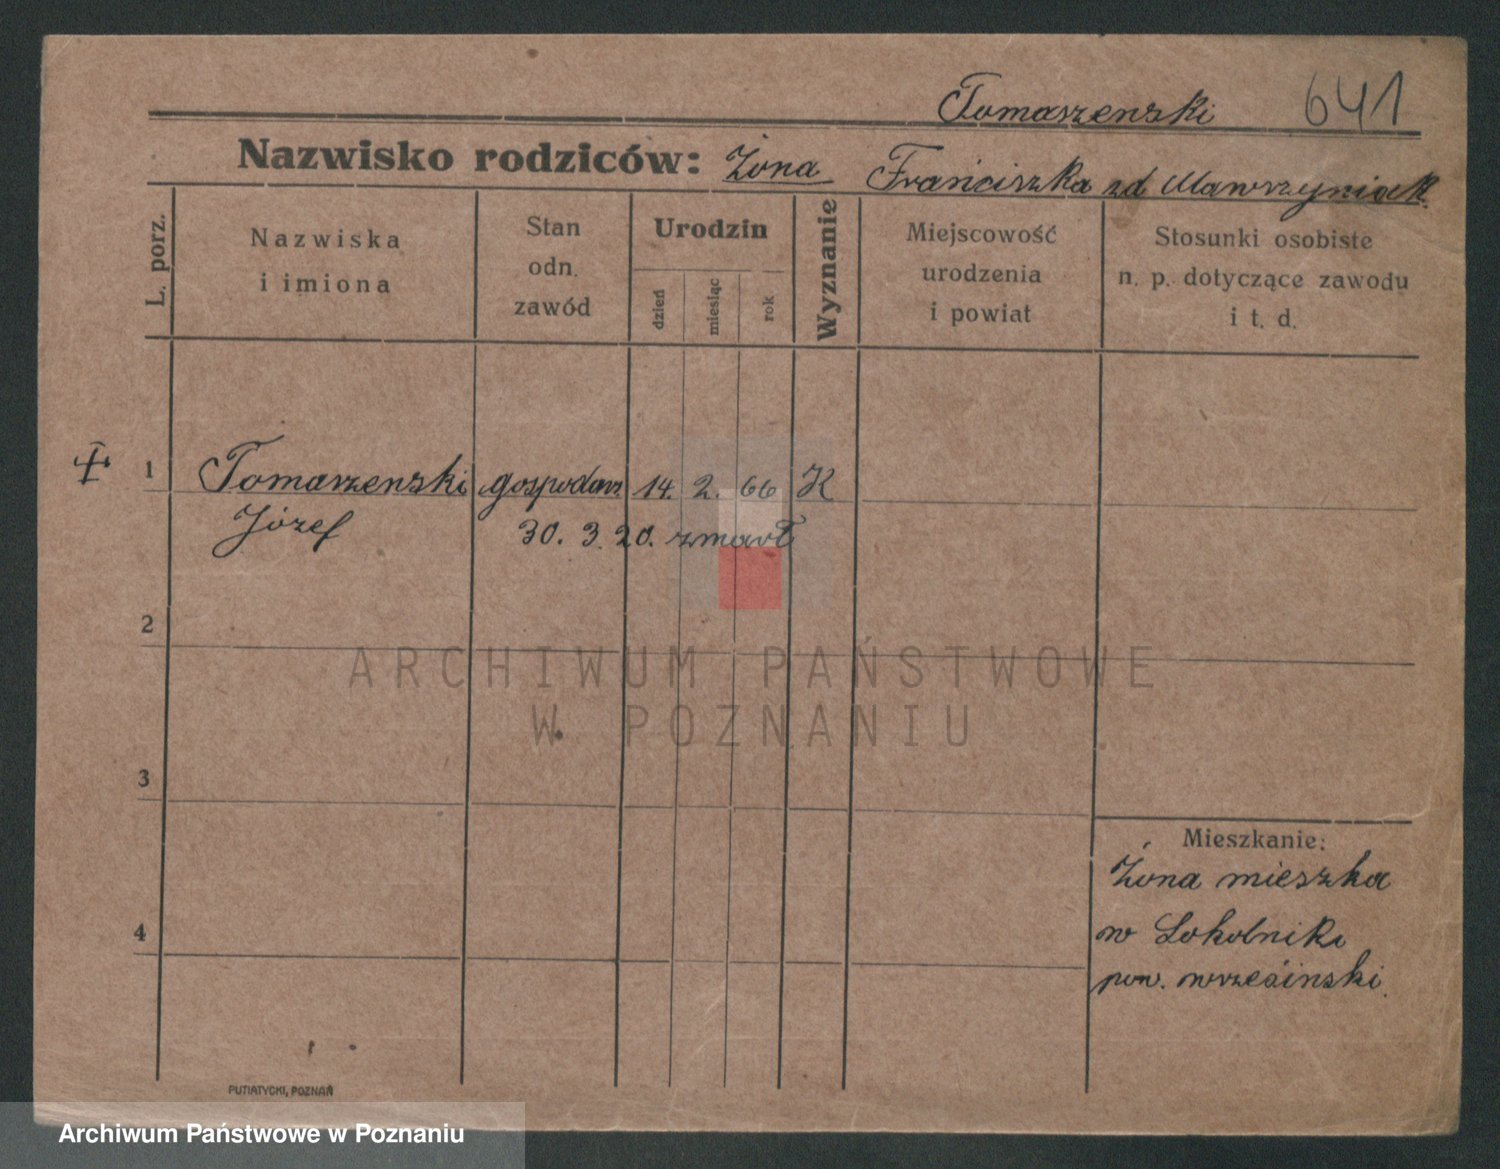 Tomaszewski 641
Nazwisko rodziców: Żona Franciszka zd Wawrzyniak.
L. porz.
Nazwiska
i imiona
Stan
odn.
zawód
Urodzin
dzień
miesiąc
rok
Wyznanie
Miejscowość
urodzenia
i powiat
Stosunki osobiste
n. p. dotyczące zawodu
i t. d.
1 Tomaszewski gospodarz 14. 2. 66 K
Józef 30. 3. 20. zmarł
2
3
4
Mieszkanie:
Żona mieszka
w Sokolniki
pow. wrzesinski.
PUTIATYCKI, POZNAŃ
ARCHIWUM PAŃSTWOWE
W POZNANIU
Archiwum Państwowe w Poznaniu